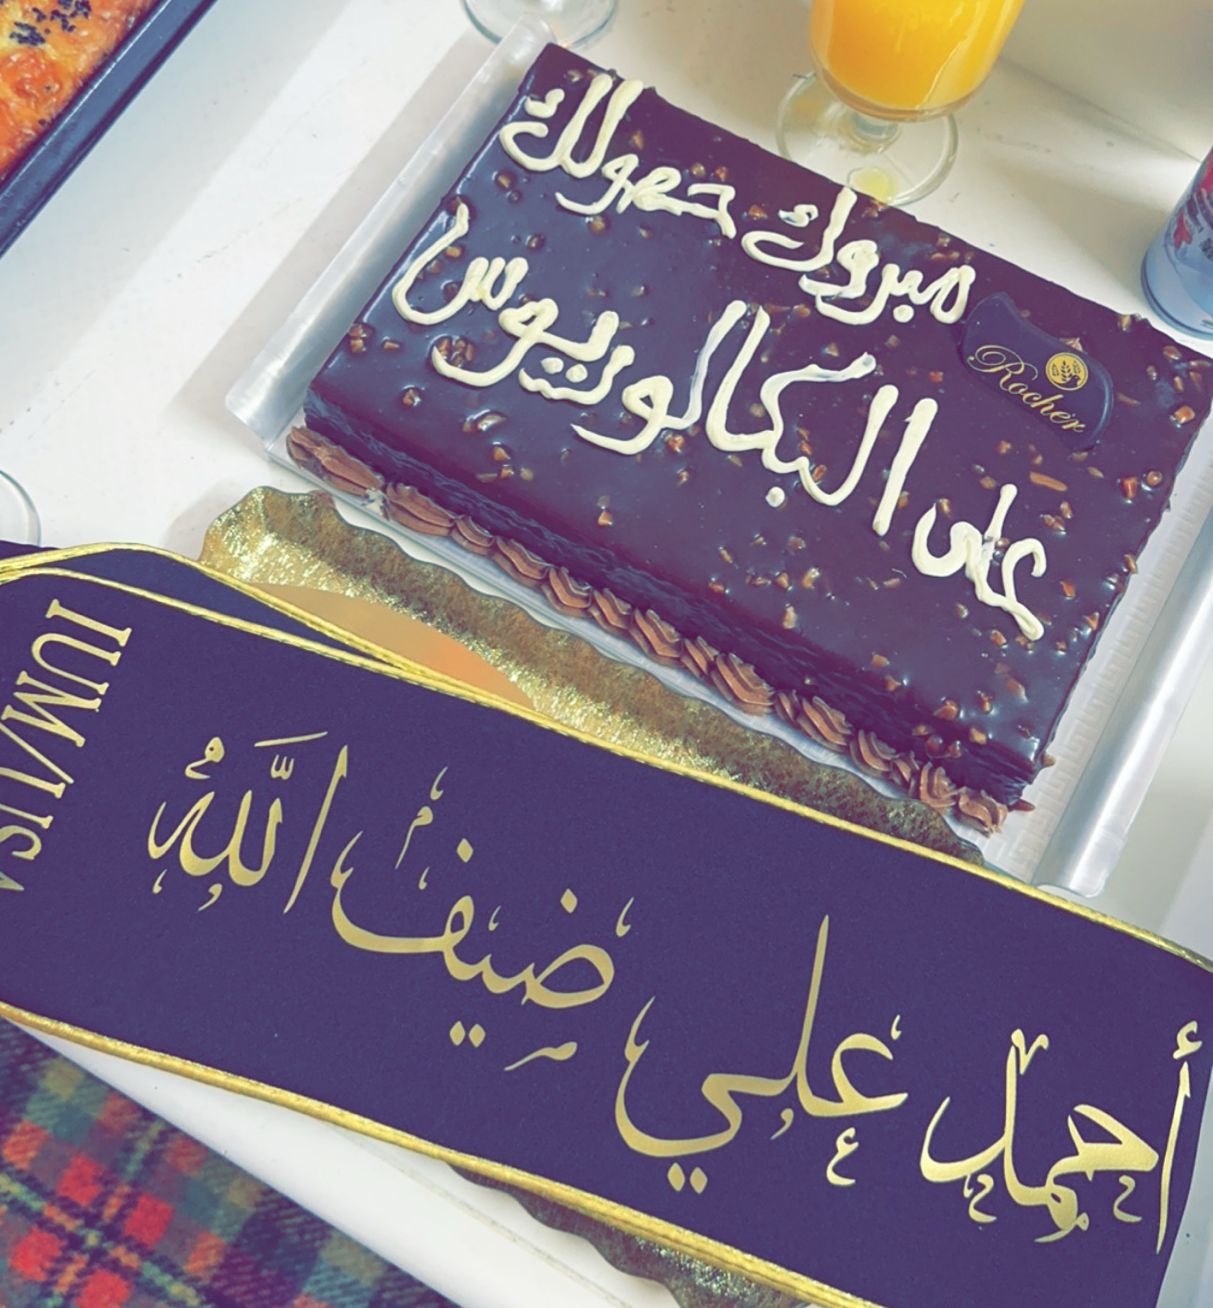 مبروك حصولك
على البكالوريوس
Rocher
أحمد علي ضيف الله
IUM/USM